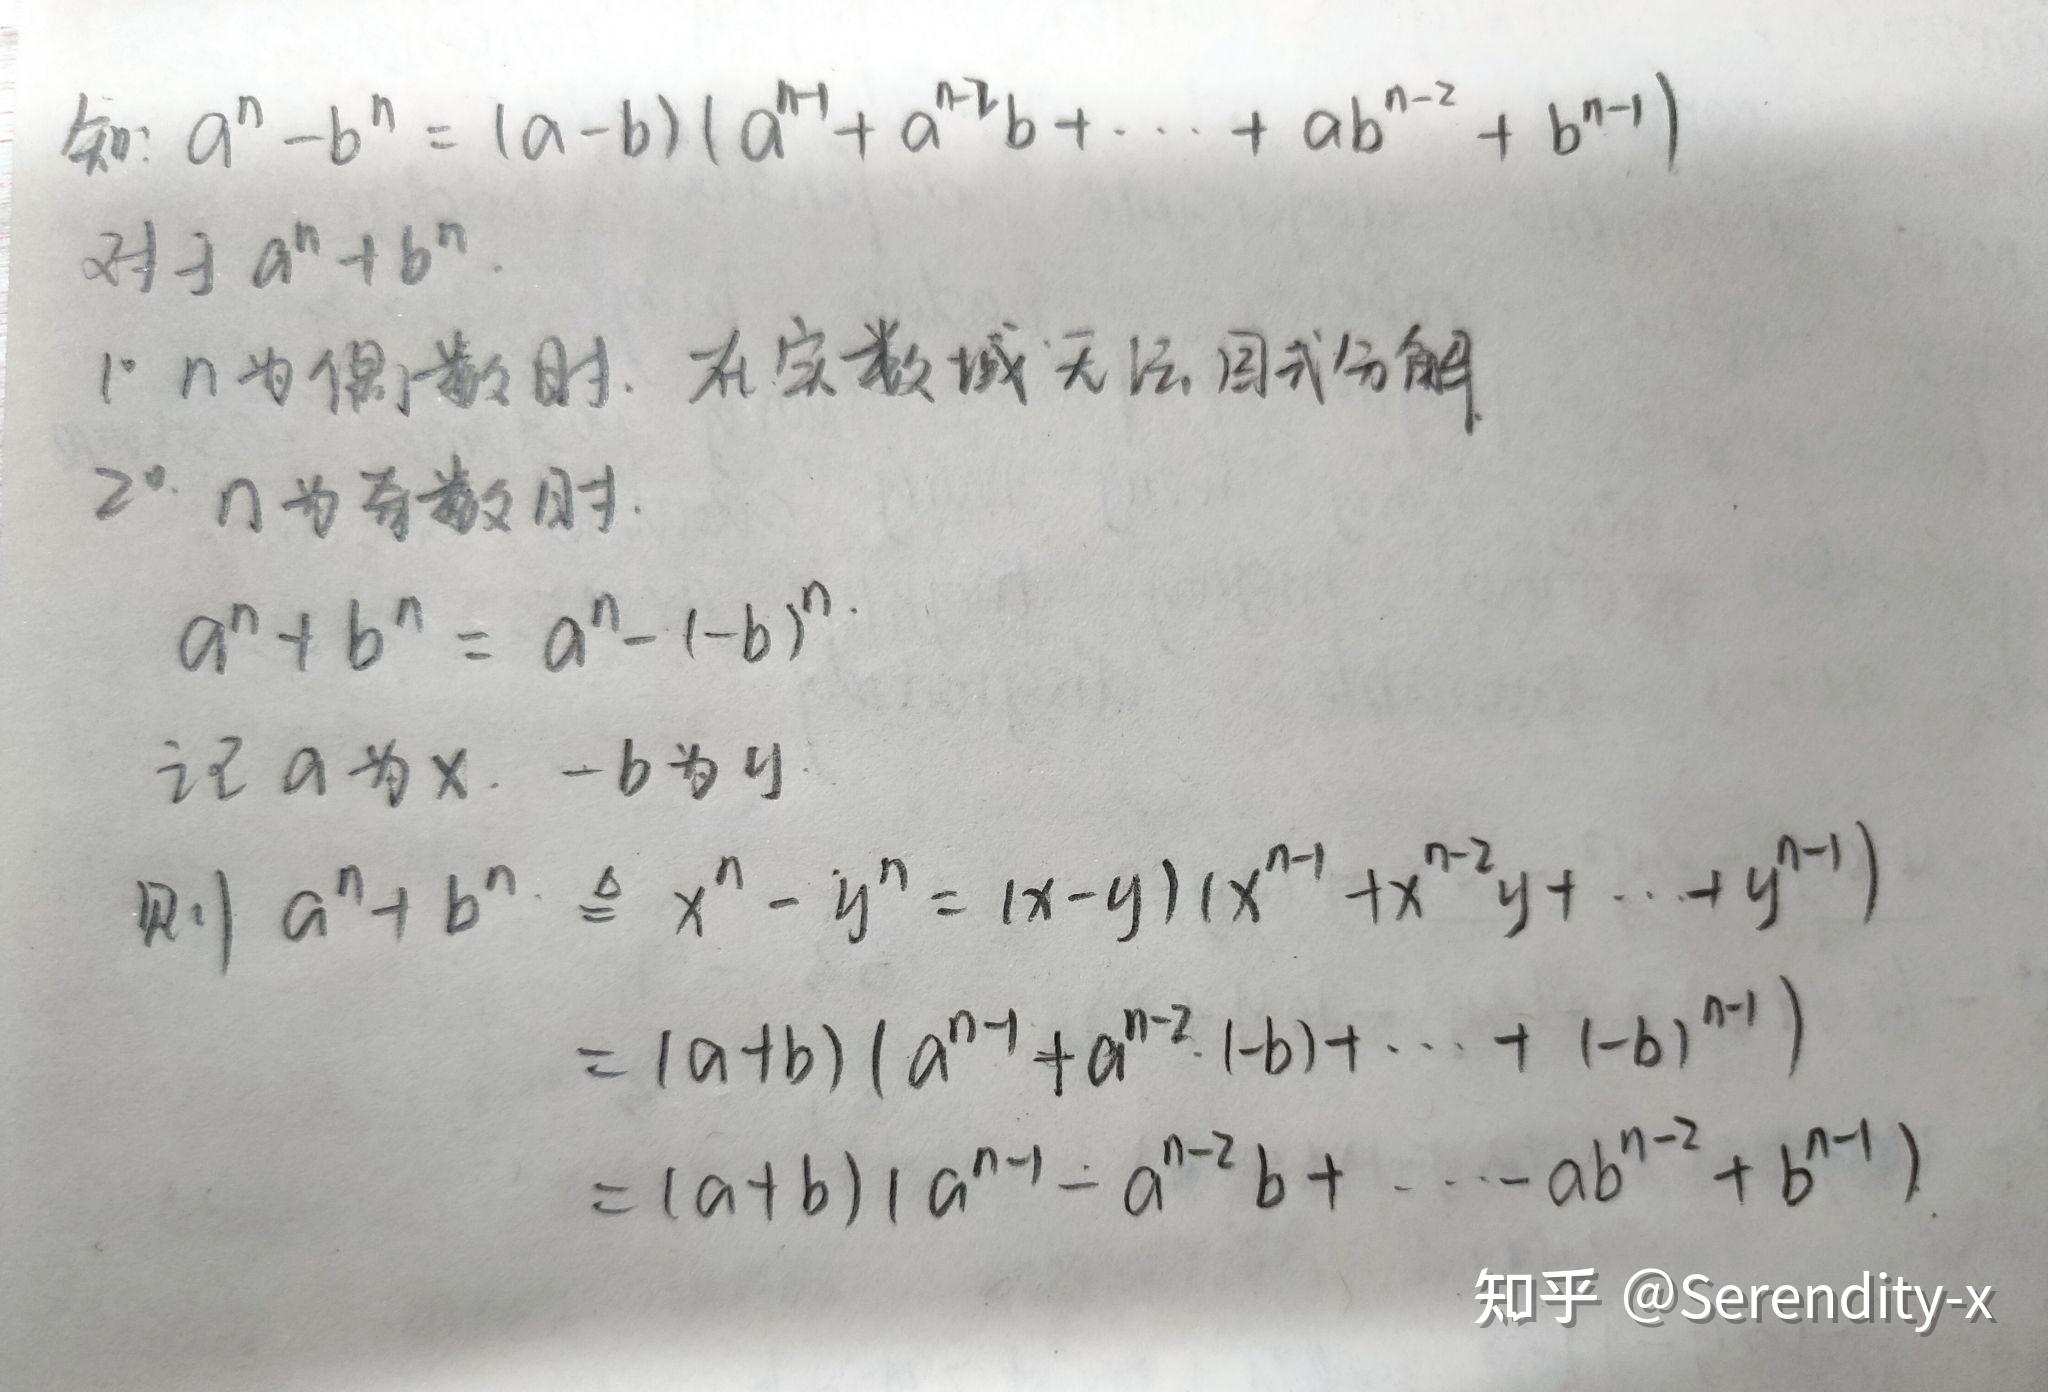 知: aⁿ-bⁿ = (a-b)(aⁿ⁻¹+aⁿ⁻²b+····+abⁿ⁻²+bⁿ⁻¹)
对于 aⁿ+bⁿ.
1° n为偶数时. 在实数域无法因式分解
2° n为奇数时.
aⁿ+bⁿ = aⁿ-(-b)ⁿ.
记a为x. -b为y.
则 aⁿ+bⁿ ≜ xⁿ-yⁿ = (x-y)(xⁿ⁻¹+xⁿ⁻²y+···+yⁿ⁻¹)
= (a+b)(aⁿ⁻¹+aⁿ⁻²·(-b)+····+(-b)ⁿ⁻¹)
= (a+b)(aⁿ⁻¹-aⁿ⁻²b+····-abⁿ⁻²+bⁿ⁻¹).
知乎 @Serendity-x